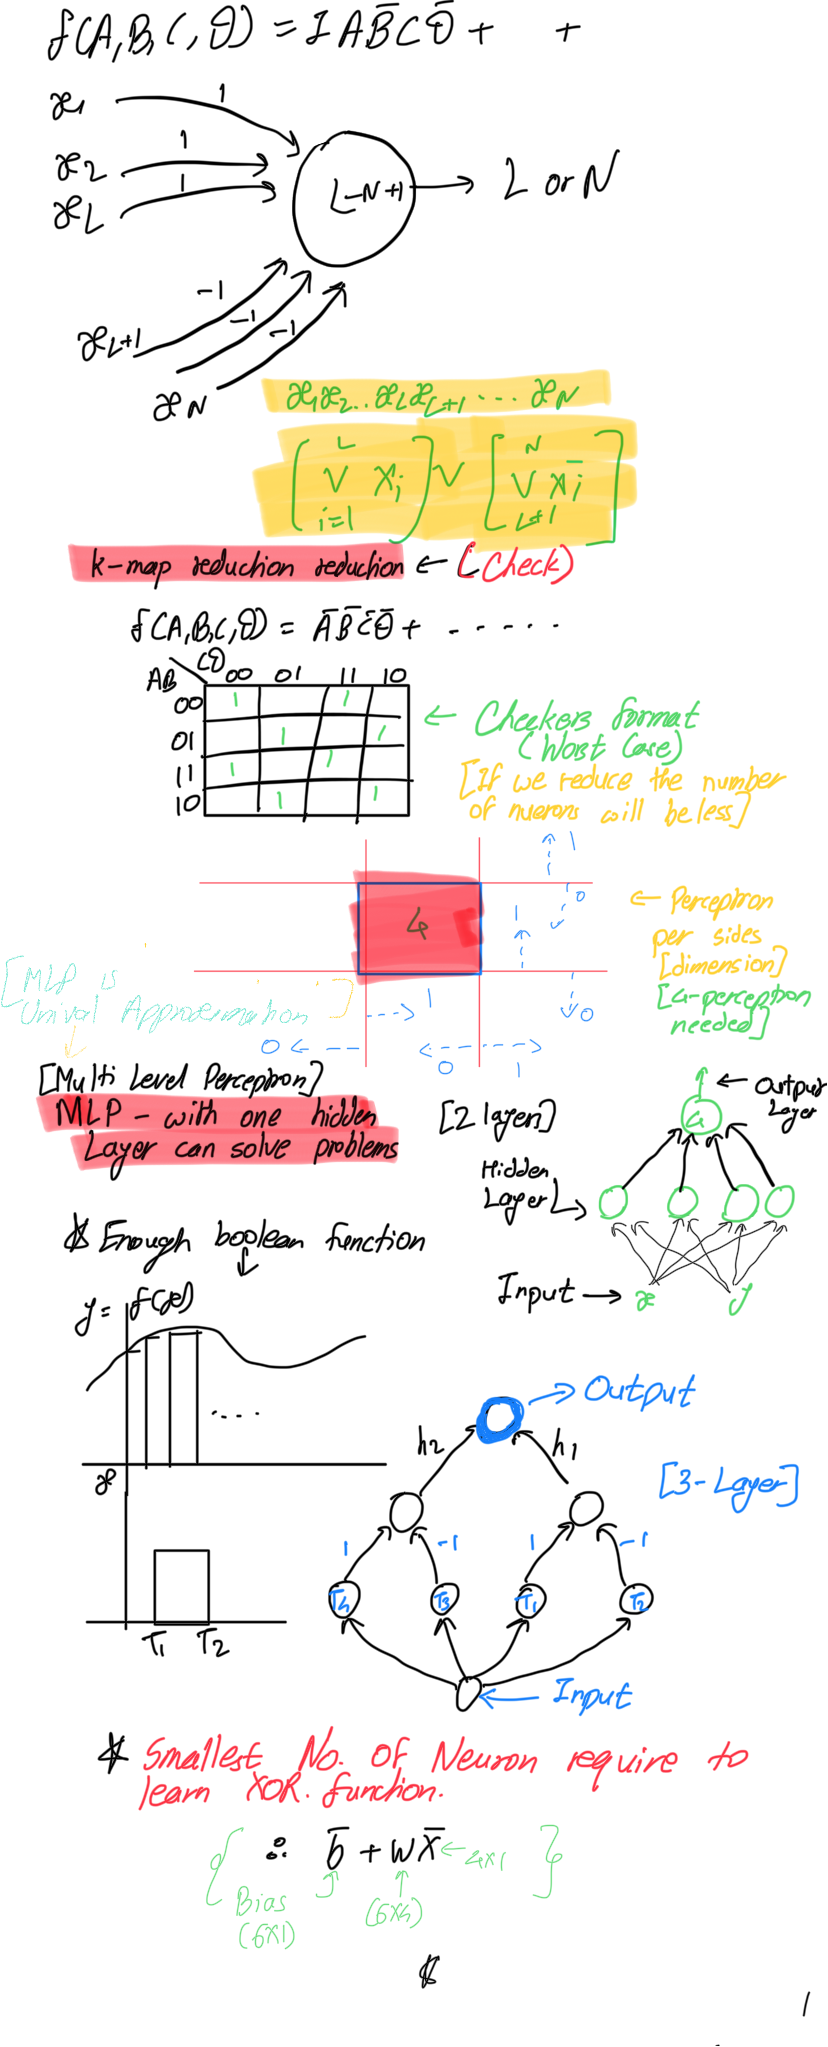 f(A,B,C,D) = I A B̄ C D̄ + +
x₁ 1
x₂ 1
x_L 1
L-N+1 → L or N
x_{L+1} -1
-1
x_N -1
x₁x₂..x_L x_{L+1} .... x_N
( L ∨ i=1 x_i ) ∨ [ N ∨ L+1 x̄_i ]
k-map reduction reduction ← (Check)
f(A,B,C,D) = Ā B̄ C̄ D̄ + ......
AB CD 00 01 11 10
00 1 1
01 1 1
11 1 1
10 1 1
← Checkers format
(Worst Case)
[If we reduce the number
of nuerons will be less]
1
0
4
1
← Perceptron
per sides
[dimension]
[4-perception
needed]
[MLP is
Approximation]
→ 1
0 ←
0 1
0
[Multi Level Perceptron]
MLP - with one hidden
Layer can solve problems
[2 layer]
4 ← Output
Layer
Hidden
Layer
Input → x y
* Enough boolean function
y = f(x)
....
x
T₁ T₂
→ Output
h₂ h₁
[3-Layer]
1 -1 1 -1
T₄ T₃ T₁ T₂
← Input
* Smallest No. of Neuron require to
learn XOR. function.
{ ∴ b̄ + w x̄ ← 4x1 }
Bias
(5x1)
(5x4)